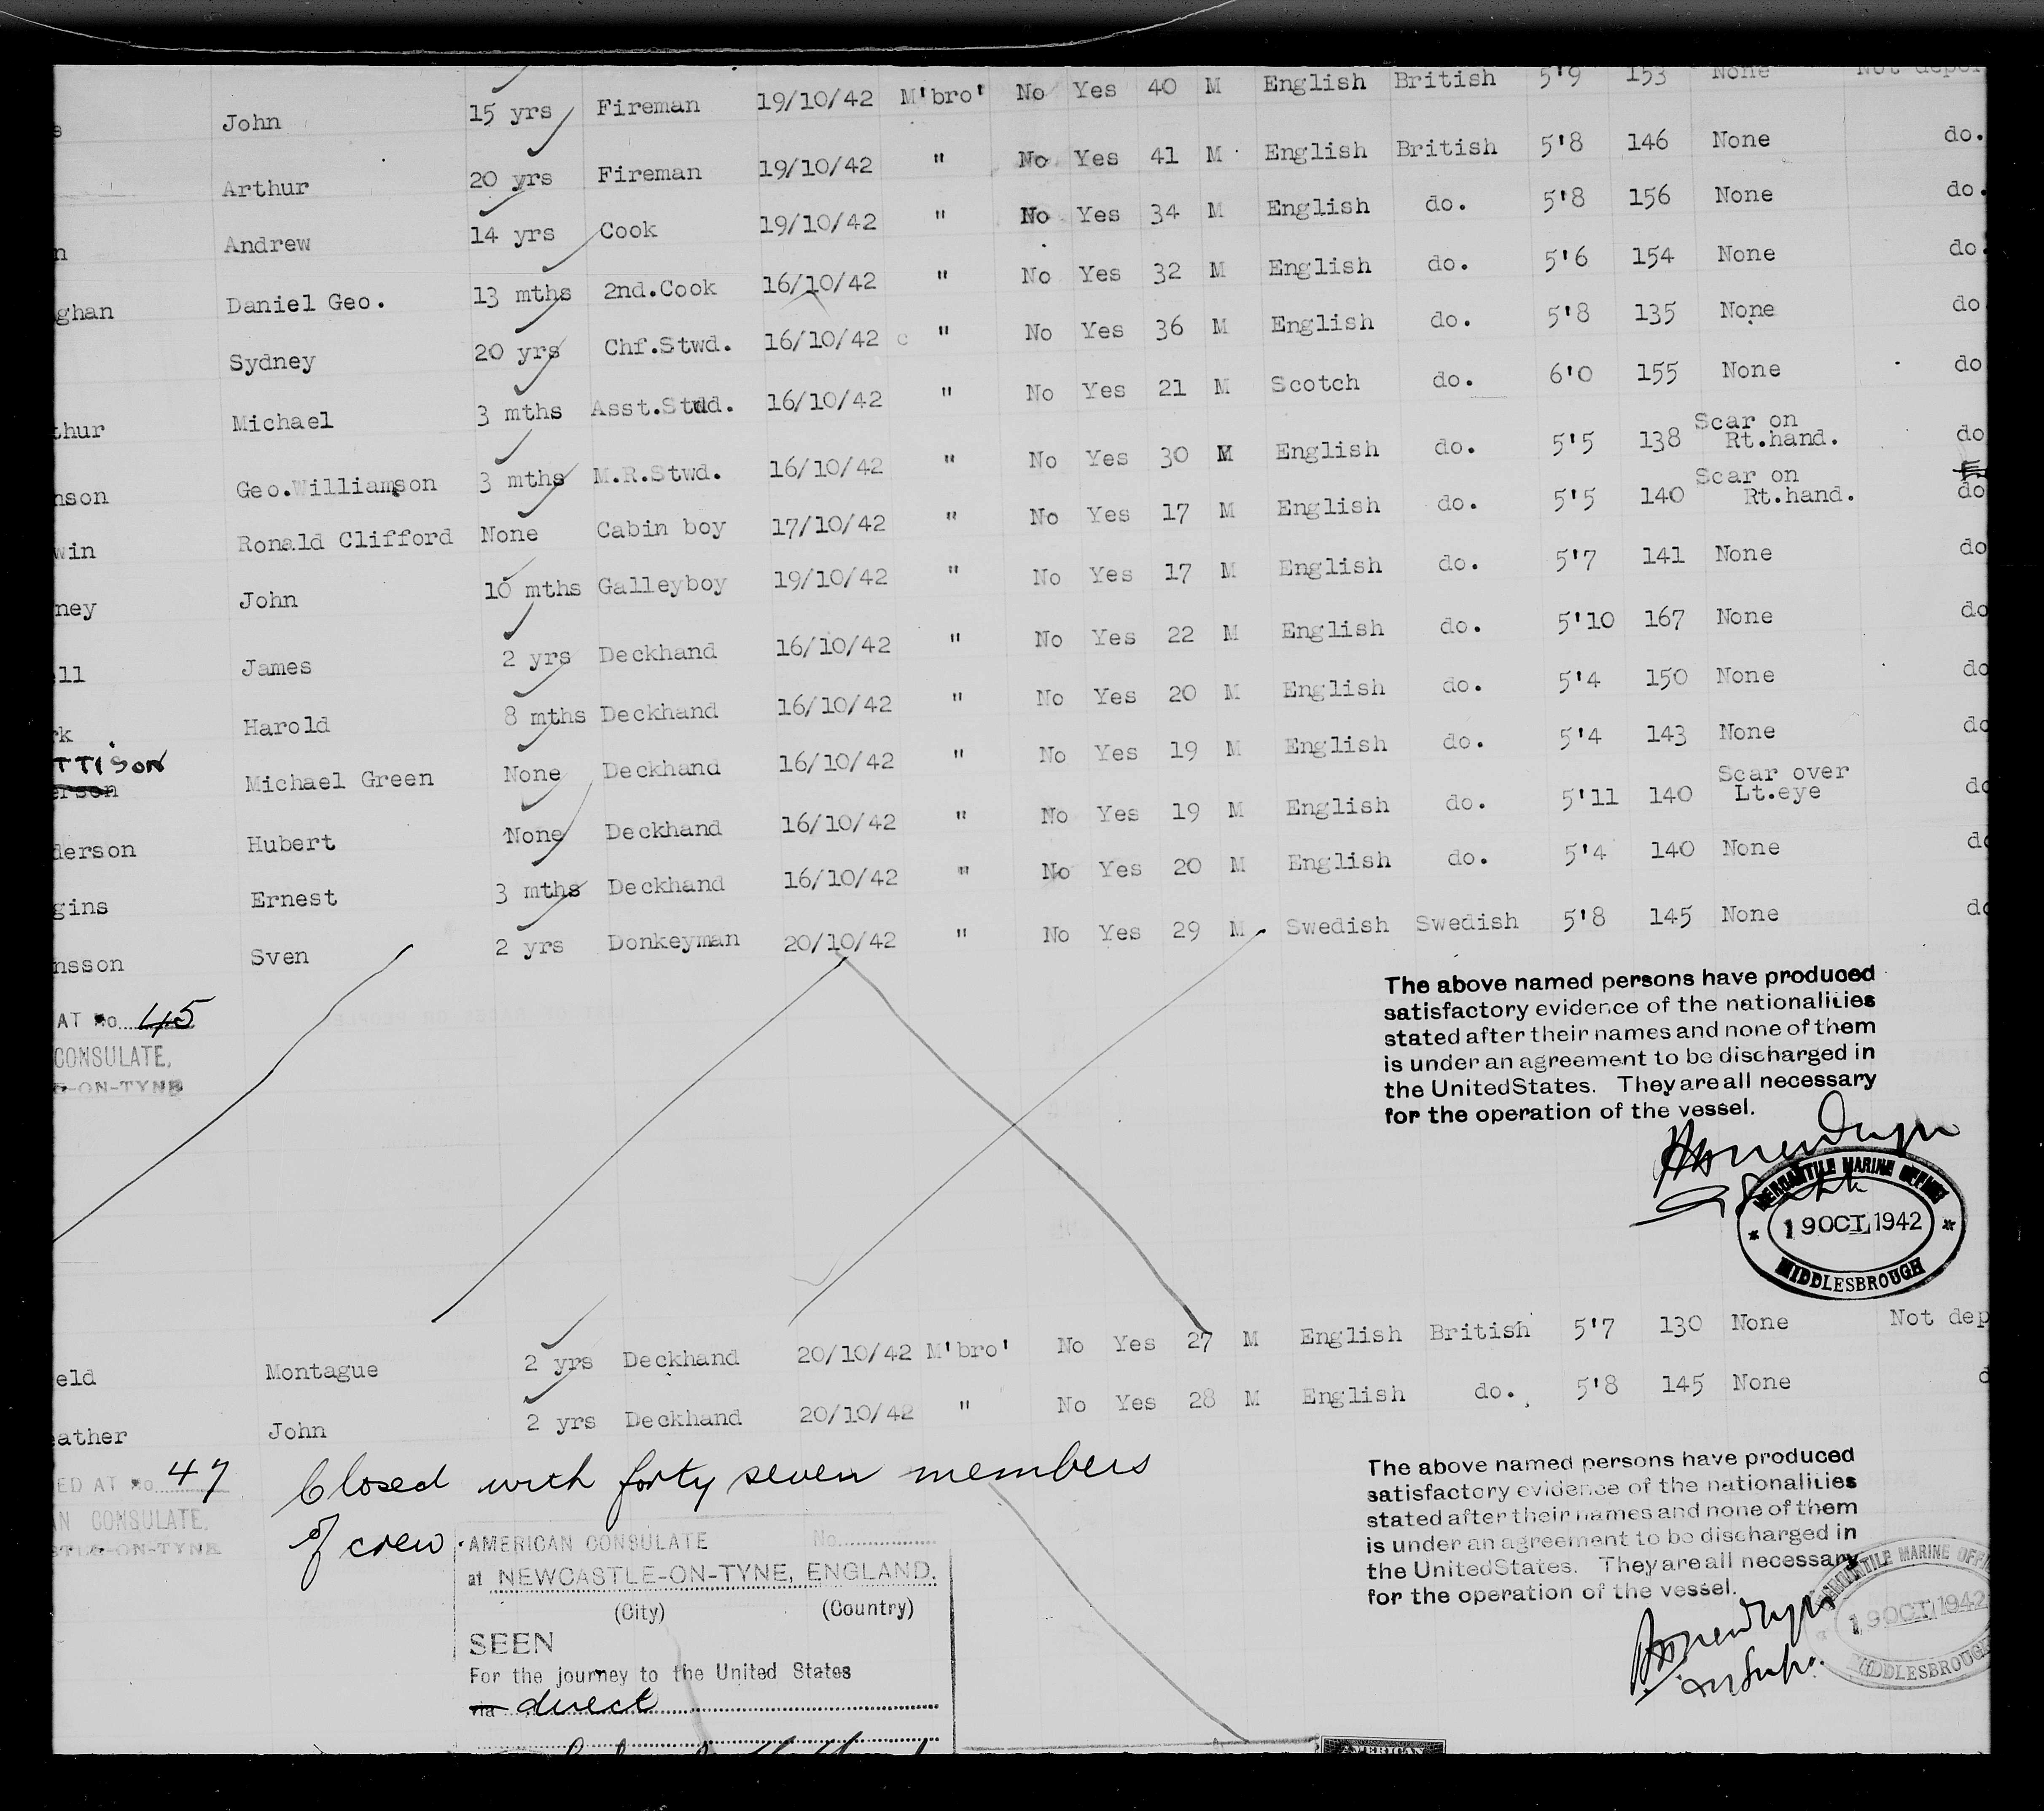 John 15 yrs Fireman 19/10/42 M'bro' No Yes 40 M English British 5'9 153 None
Arthur 20 yrs Fireman 19/10/42 " No Yes 41 M English British 5'8 146 None do.
n Andrew 14 yrs Cook 19/10/42 " No Yes 34 M English do. 5'8 156 None do.
ghan Daniel Geo. 13 mths 2nd.Cook 16/10/42 " No Yes 32 M English do. 5'6 154 None do.
Sydney 20 yrs Chf.Stwd. 16/10/42 " No Yes 36 M English do. 5'8 135 None do
thur Michael 3 mths Asst.Stwd. 16/10/42 " No Yes 21 M Scotch do. 6'0 155 None do
nson Geo.Williamson 3 mths M.R.Stwd. 16/10/42 " No Yes 30 M English do. 5'5 138 Scar on Rt.hand. do
win Ronald Clifford None Cabin boy 17/10/42 " No Yes 17 M English do. 5'5 140 Scar on Rt.hand. do
ney John 10 mths Galleyboy 19/10/42 " No Yes 17 M English do. 5'7 141 None do
ll James 2 yrs Deckhand 16/10/42 " No Yes 22 M English do. 5'10 167 None do
rk Harold 8 mths Deckhand 16/10/42 " No Yes 20 M English do. 5'4 150 None do
TTISON
erson Michael Green None Deckhand 16/10/42 " No Yes 19 M English do. 5'4 143 None do
derson Hubert None Deckhand 16/10/42 " No Yes 19 M English do. 5'11 140 Scar over Lt.eye do
gins Ernest 3 mths Deckhand 16/10/42 " No Yes 20 M English do. 5'4 140 None do
nsson Sven 2 yrs Donkeyman 20/10/42 " No Yes 29 M Swedish Swedish 5'8 145 None do
AT No. 45
CONSULATE,
E-ON-TYNE
The above named persons have produced
satisfactory evidence of the nationalities
stated after their names and none of them
is under an agreement to be discharged in
the United States. They are all necessary
for the operation of the vessel.
MERCANTILE MARINE OFFICE
19 OCT 1942
MIDDLESBROUGH
eld Montague 2 yrs Deckhand 20/10/42 M'bro' No Yes 27 M English British 5'7 130 None Not dep
eather John 2 yrs Deckhand 20/10/42 " No Yes 28 M English do. 5'8 145 None d
ED AT No. 47
AN CONSULATE,
STLE-ON-TYNE
Closed with forty seven members
of crew
AMERICAN CONSULATE No.
at NEWCASTLE-ON-TYNE, ENGLAND.
(City) (Country)
SEEN
For the journey to the United States
via direct
The above named persons have produced
satisfactory evidence of the nationalities
stated after their names and none of them
is under an agreement to be discharged in
the United States. They are all necessary
for the operation of the vessel.
MERCANTILE MARINE OFFI
19 OCT 1942
MIDDLESBROUGH
AMERICAN